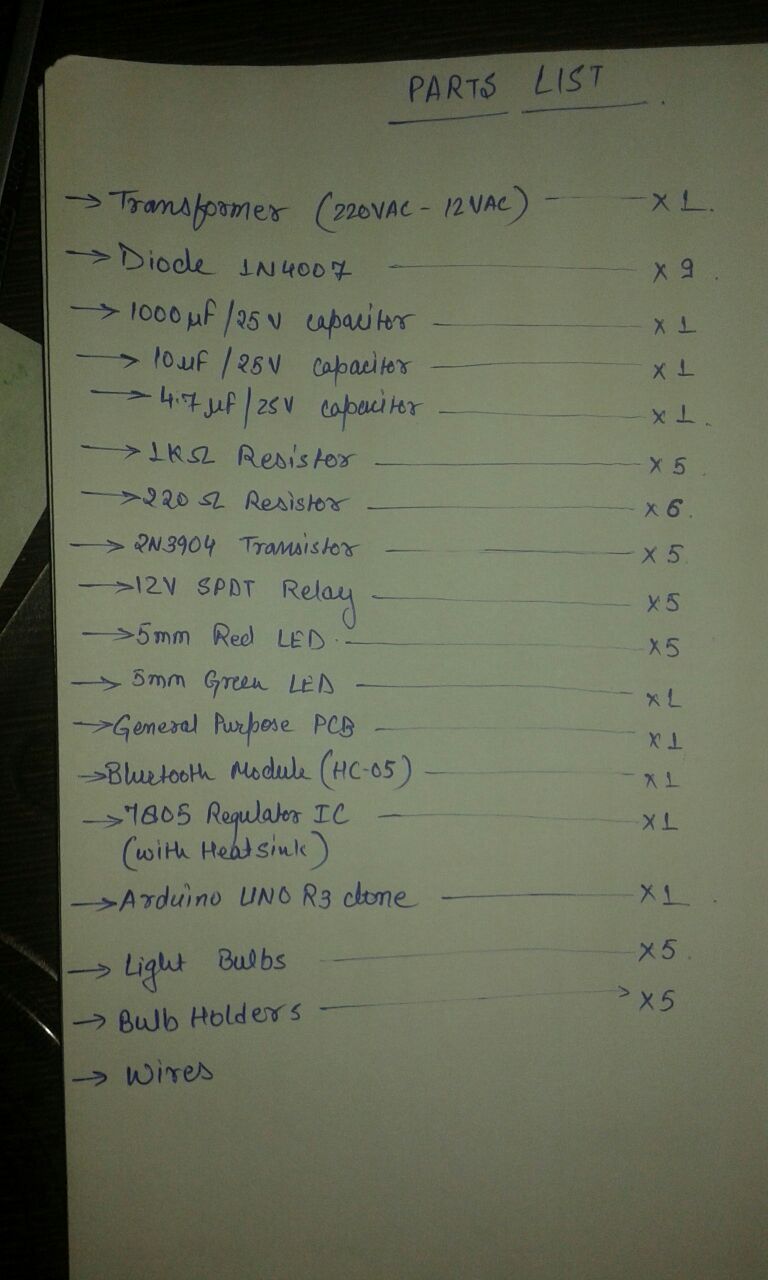 PARTS LIST.
→ Transformer (220VAC - 12VAC) — x 1.
→ Diode 1N4007 — x 9.
→ 1000 µf/25V capacitor — x 1
→ 10 µf/25V capacitor — x 1
→ 4.7 µf/25V capacitor — x 1.
→ 1KΩ Resistor — x 5.
→ 220 Ω Resistor — x 6.
→ 2N3904 Transistor — x 5.
→ 12V SPDT Relay — x5
→ 5mm Red LED. — x5
→ 5mm Green LED — x1
→ General Purpose PCB — x1
→ Bluetooth Module (HC-05) — x1
→ 7805 Regulator IC — x1
(with Heatsink)
→ Arduino UNO R3 clone — x1.
→ Light Bulbs — x5.
→ Bulb Holders —> x5
→ Wires